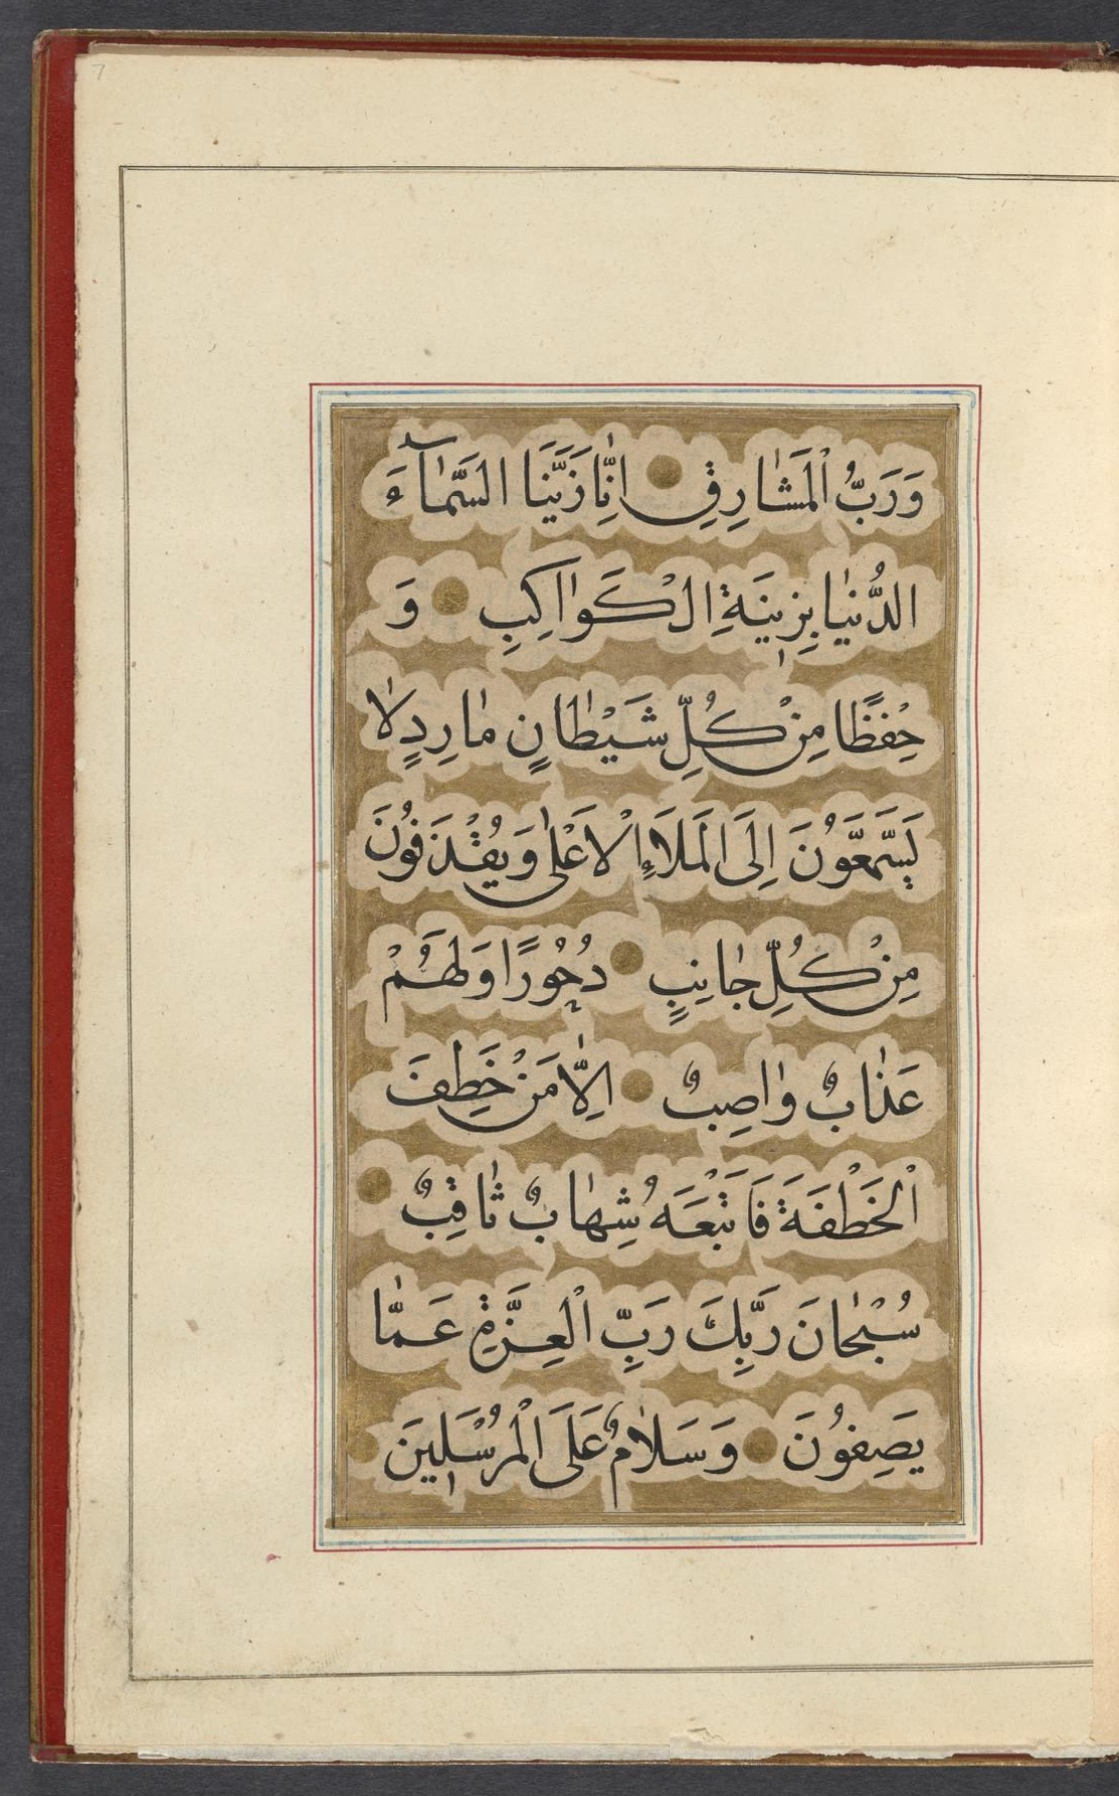 7
وَرَبُّ الْمَشَارِقِ اِنَّا زَيَّنَّا السَّمَآءَ
الدُّنْيَا بِزِينَةِ الْكَوَاكِبِ وَ
حِفْظًا مِنْ كُلِّ شَيْطَانٍ مَارِدٍ لَا
يَسَّمَّعُونَ اِلَى الْمَلَاءِ الْاَعْلٰى وَيُقْذَفُونَ
مِنْ كُلِّ جَانِبٍ دُحُورًا وَلَهُمْ
عَذَابٌ وَاصِبٌ اِلَّا مَنْ خَطِفَ
الْخَطْفَةَ فَاَتْبَعَهُ شِهَابٌ ثَاقِبٌ
سُبْحَانَ رَبِّكَ رَبِّ الْعِزَّةِ عَمَّا
يَصِفُونَ وَسَلَامٌ عَلَى الْمُرْسَلِينَ